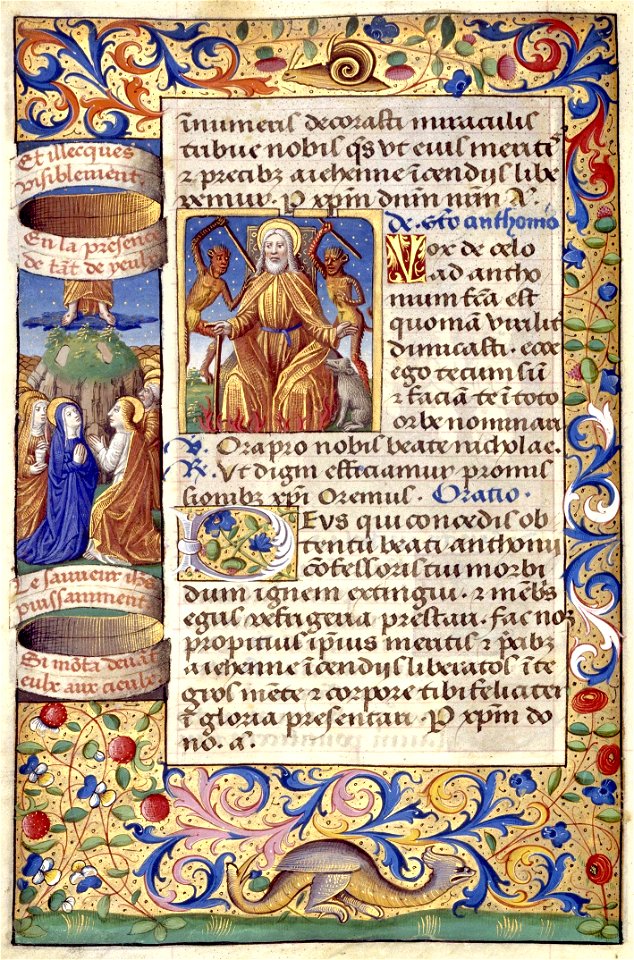 Et illecques
visiblement.
En la presence
de tãt de peuple
Le sauueur ihs
puissamment
Si mõta deuãt
eulx aux cieulx
ĩnumeris decorasti miraculis
tribue nobis q̃s vt eius meritis
⁊ precibꝫ a iehenne ĩcendijs libe
remur. P xp̃m dñm nr̃m A.
De. sc̃o anthonio
Vox de celo
ad antho
nium fc̃a est
quoniã virilit
dimicasti. ecce
ego tecum sũ
⁊ faciã te ĩ toto
orbe nominari
V. Ora pro nobis beate nicholae.
R. Vt digni efficiamur promis
sionibꝫ xp̃i Oremus. Oratio.
Deus qui concedis ob
tentu beati anthonij
cõfessoris tui morbi
dum ignem extingui. ⁊ mẽbris
egris refrigeria prestari. fac nos
propitius ip̃ius meritis ⁊ p̃cibꝫ
a iehenne ĩcendijs liberatos ĩte
gros mẽte ⁊ corpore tibi feliciter
ĩ gloria presentari. P xp̃m do
no. a.